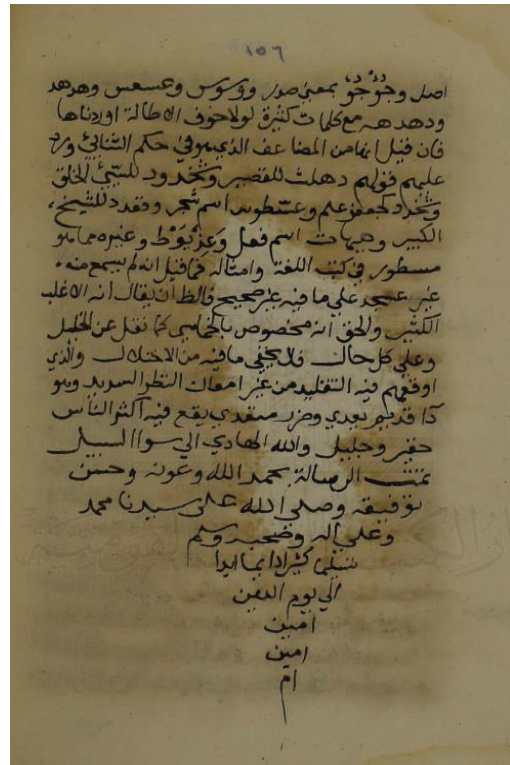 ١٥٦
اصل وجؤجؤ بمعنى صدر ووسوس وعسعس وهدهد
ودهدهه مع كلمات كثيرة لولا خوف الاطالة اوردناها
فان قيل انها من المضاعف الذي هو في حكم الثنائي ورد
عليهم قولهم دهلث للقصير وللسيئ الخلق
كجعفر علم وعسطوس اسم شجر وقعدد للشيخ
الكبير وهيهات اسم فعل وعذيوط وغيره مما هو
مسطور في كتب اللغة وامثاله فما قيل انه لم يسمع منه
غير عسجد علي ما فيه غير صحيح فالظ ان يقال انه الاغلب
الكثير والحق انه مخصوص بالخماسي كما نقل عن الخليل
وعلي كل حال فلا يخفي ما فيه من الاختلال والذي
اوقعهم فيه التقليد من غير امعان النظر السديد وهو
دا قديم يعدي وضرر يقع فيه اكثر الناس
حقير وجليل والله الهادي الي سوا السبيل
تمت الرسالة بحمد الله وعونه وحسن
توفيقه وصلي الله علي سيدنا محمد
وعلي آله وصحبه وسلم
تسليما كثيرا دايما ابدا
الي يوم الدين
امين
امين
ام